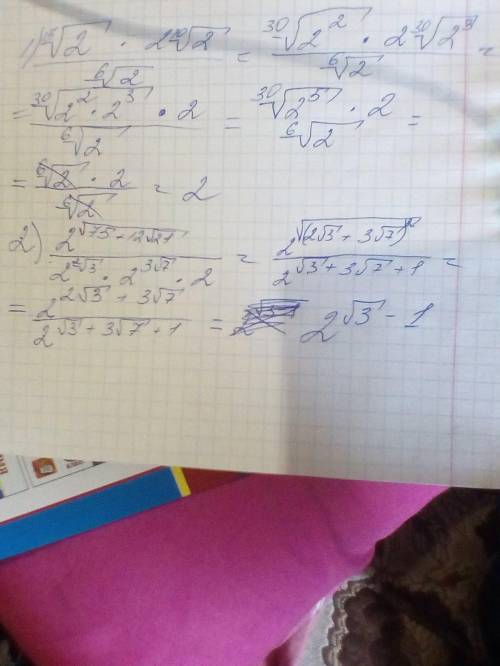 1) ¹⁵√2 · 2¹⁰√2 / ⁶√2 = ³⁰√2² · 2 ³⁰√2³ / ⁶√2 =
= ³⁰√2² · 2³ · 2 / ⁶√2 = ³⁰√2⁵ · 2 / ⁶√2 =
= ⁶√2 · 2 / ⁶√2 = 2
2) 2^(√75+12√21) / 2^(√3) · 2^(3√7) · 2 = 2^(√(2√3 + 3√7)²) / 2^(√3 + 3√7 + 1) =
= 2^(2√3 + 3√7) / 2^(√3 + 3√7 + 1) = 2^(√3 - 1)